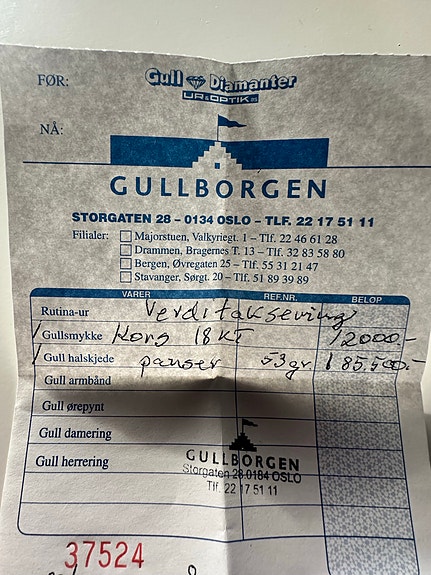 FØR:
Gull Diamanter
UR & OPTIK AS
NÅ:
GULLBORGEN
STORGATEN 28 – 0134 OSLO – TLF. 22 17 51 11
Filialer: Majorstuen, Valkyriegt. 1 – Tlf. 22 46 61 28
Drammen, Bragenes T. 13 – Tlf. 32 83 58 80
Bergen, Øvregaten 25 – Tlf. 55 31 21 47
Stavanger, Sørgt. 20 – Tlf. 51 89 39 89
VARER REF.NR. BELØP
Rutina-ur Verditaksering
Gullsmykke Kors 18 KT 12000.-
Gull halskjede panser 53 gr. 85.500.-
Gull armbånd
Gull ørepynt
Gull damering
Gull herrering
GULLBORGEN
Storgaten 28.0184 OSLO
Tlf. 22 17 51 11
37524